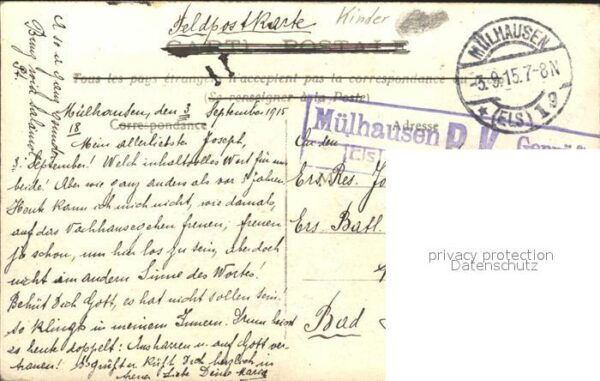 Feldpostkarte
Kinder
CARTE POSTALE
Tous les pays étrangers n'acceptent pas la correspondance
(Se renseigner à la Poste)
Correspondance
Adresse
MÜLHAUSEN
-3.9.15.7-8N
* (ELS) 1 g
Mülhausen P.K.
(Els
Mülhausen, den 3 September 1915
Mein allerliebster Joseph,
3. September! Welch inhaltsvolles Wort für uns
beide! Aber wie ganz anders als vor 3 Jahren
Heute kann ich mich nicht, wie damals,
auf das Nachhausegehen freuen, freuen
ja schon, um hier los zu sein, aber doch
nicht im andern Sinne des Wortes!
Behüt Dich Gott, es hat nicht sollen sein!
so klingt's in meinem Innern. Drum heisst
es heute doppelt: Ausharren u. auf Gott ver-
trauen! küßt Dich herzlich in
Treue Liebe Deine
An den
Ers. Res. Jo
Ers. Batl.
Bad
privacy protection
Datenschutz